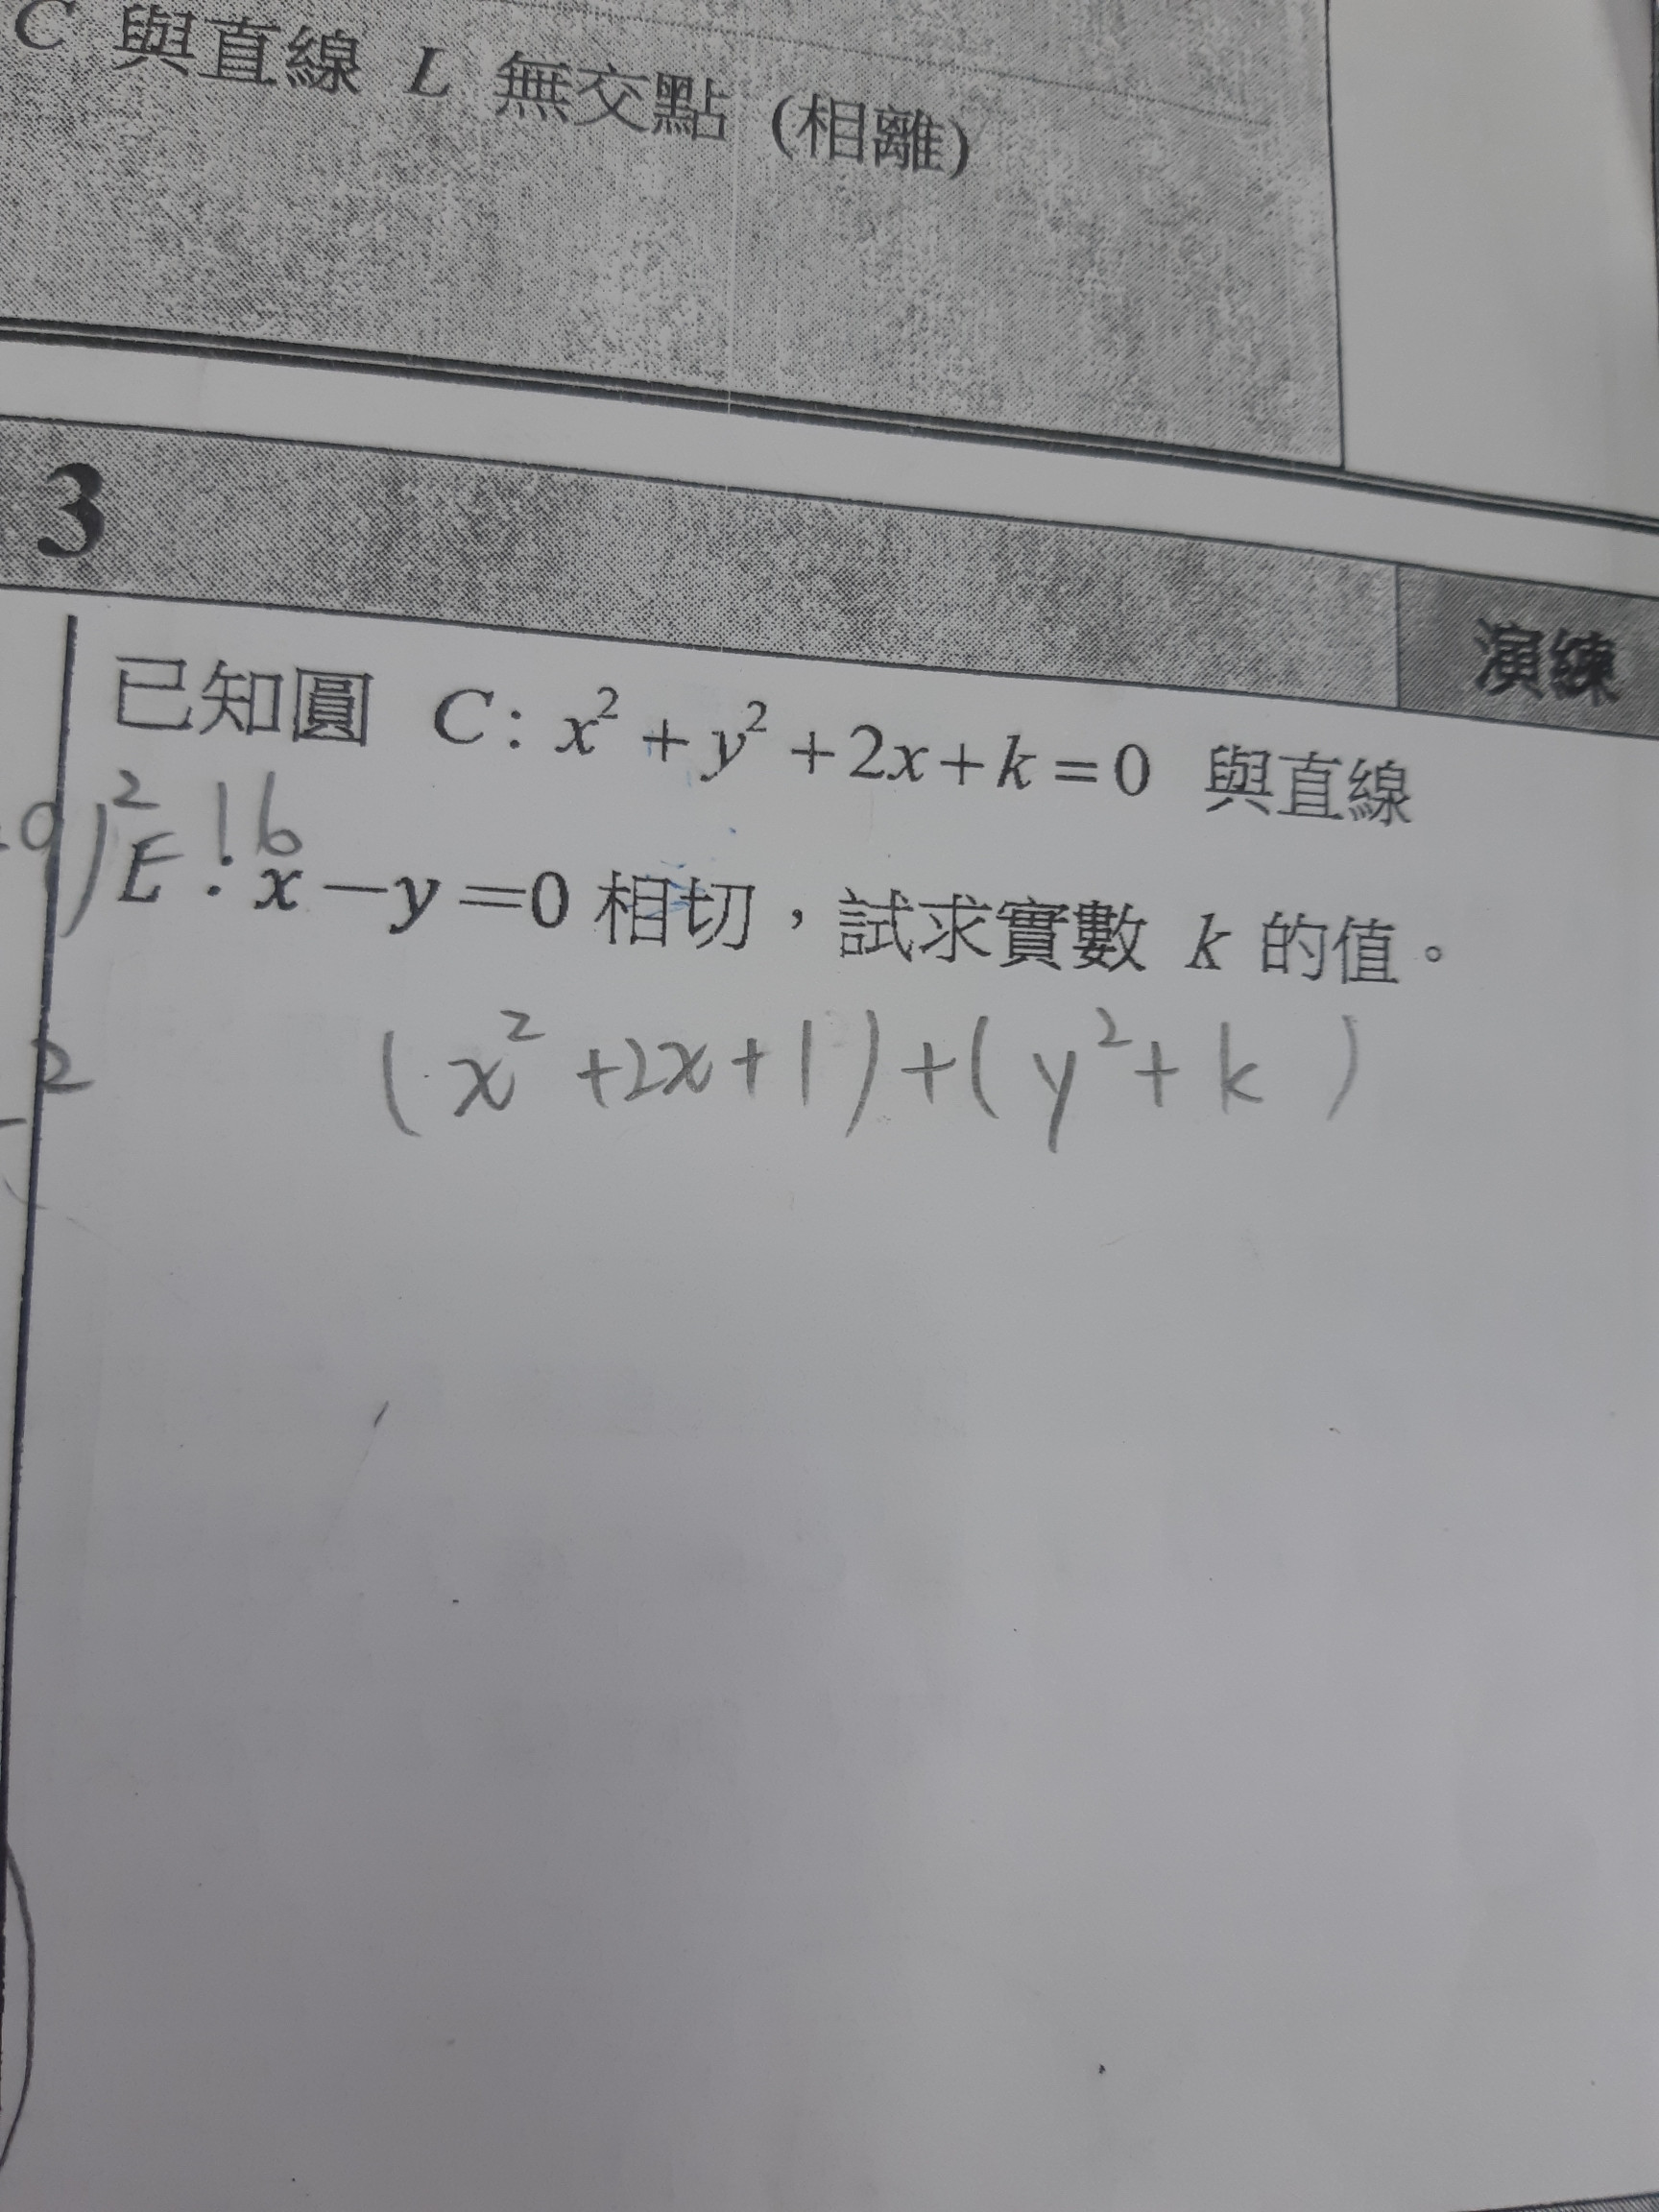 C 與直線 L 無交點 (相離)
3
演練
已知圓 C: x² + y² + 2x + k = 0 與直線
)² 16
L: x − y = 0 相切,試求實數 k 的值。
2
(x² + 2x + 1) + (y² + k )